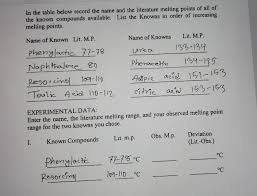 In the table below record the name and the literature melting points of all of
the known compounds available. List the Knowns in order of increasing
melting points.
Name of Knowns Lit. M.P. Name of Knowns Lit. M.P.
Phenylactic 77-78 Urea 133-134
Naphthalene 80 Phenacetin 134-135
Resorcinol 109-110 Adipic acid 151-153
Toluic Acid 110-112 citric acid 153-153
EXPERIMENTAL DATA:
Enter the name, the literature melting range, and your observed melting point
range for the two knowns you chose.
I. Known Compounds Lit. m.p. Obs. M.p. Deviation
(Lit.-Obs.)
Phenylactic 77-78 °C °C
Resorcinol 109-110 °C °C